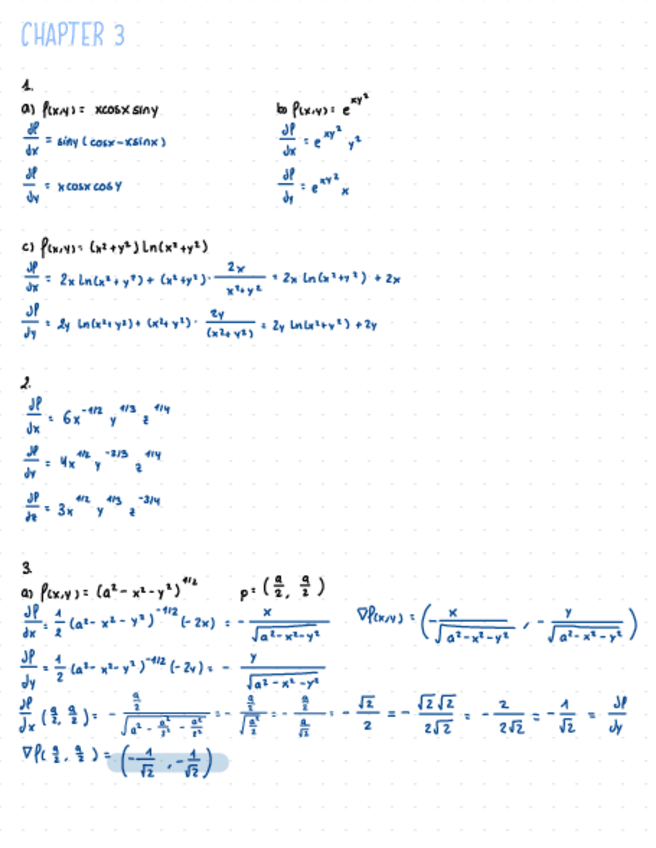 CHAPTER 3
1.
a) f(x,y) = xcosx siny
b) f(x,y) = e^{xy²}
df/dx = siny (cosx-xsinx)
df/dx = e^{xy²} y²
df/dy = xcosx cosy
df/dy = e^{xy²} x
c) f(x,y) = (x²+y²) Ln(x²+y²)
df/dx = 2x Ln(x²+y²) + (x²+y²) · 2x/(x²+y²) = 2x Ln(x²+y²) + 2x
df/dy = 2y Ln(x²+y²) + (x²+y²) · 2y/(x²+y²) = 2y Ln(x²+y²) + 2y
2.
df/dx = 6x^{-1/2} y^{1/3} z^{1/4}
df/dy = 4x^{1/2} y^{-2/3} z^{1/4}
df/dz = 3x^{1/2} y^{1/3} z^{-3/4}
3.
a) f(x,y) = (a²-x²-y²)^{1/2} p = (a/2, a/2)
df/dx = 1/2 (a²-x²-y²)^{-1/2} (-2x) = - x/√(a²-x²-y²)
∇f(x,y) = (- x/√(a²-x²-y²), - y/√(a²-x²-y²))
df/dy = 1/2 (a²-x²-y²)^{-1/2} (-2y) = - y/√(a²-x²-y²)
df/dx (a/2, a/2) = - (a/2)/√(a² - a²/2² - a²/2²) = - (a/2)/√(a²/2) = - (a/2)/(a/√2) = - √2/2 = - √2√2/2√2 = - 2/2√2 = - 1/√2 = df/dy
∇f(a/2, a/2) = (- 1/√2, - 1/√2)